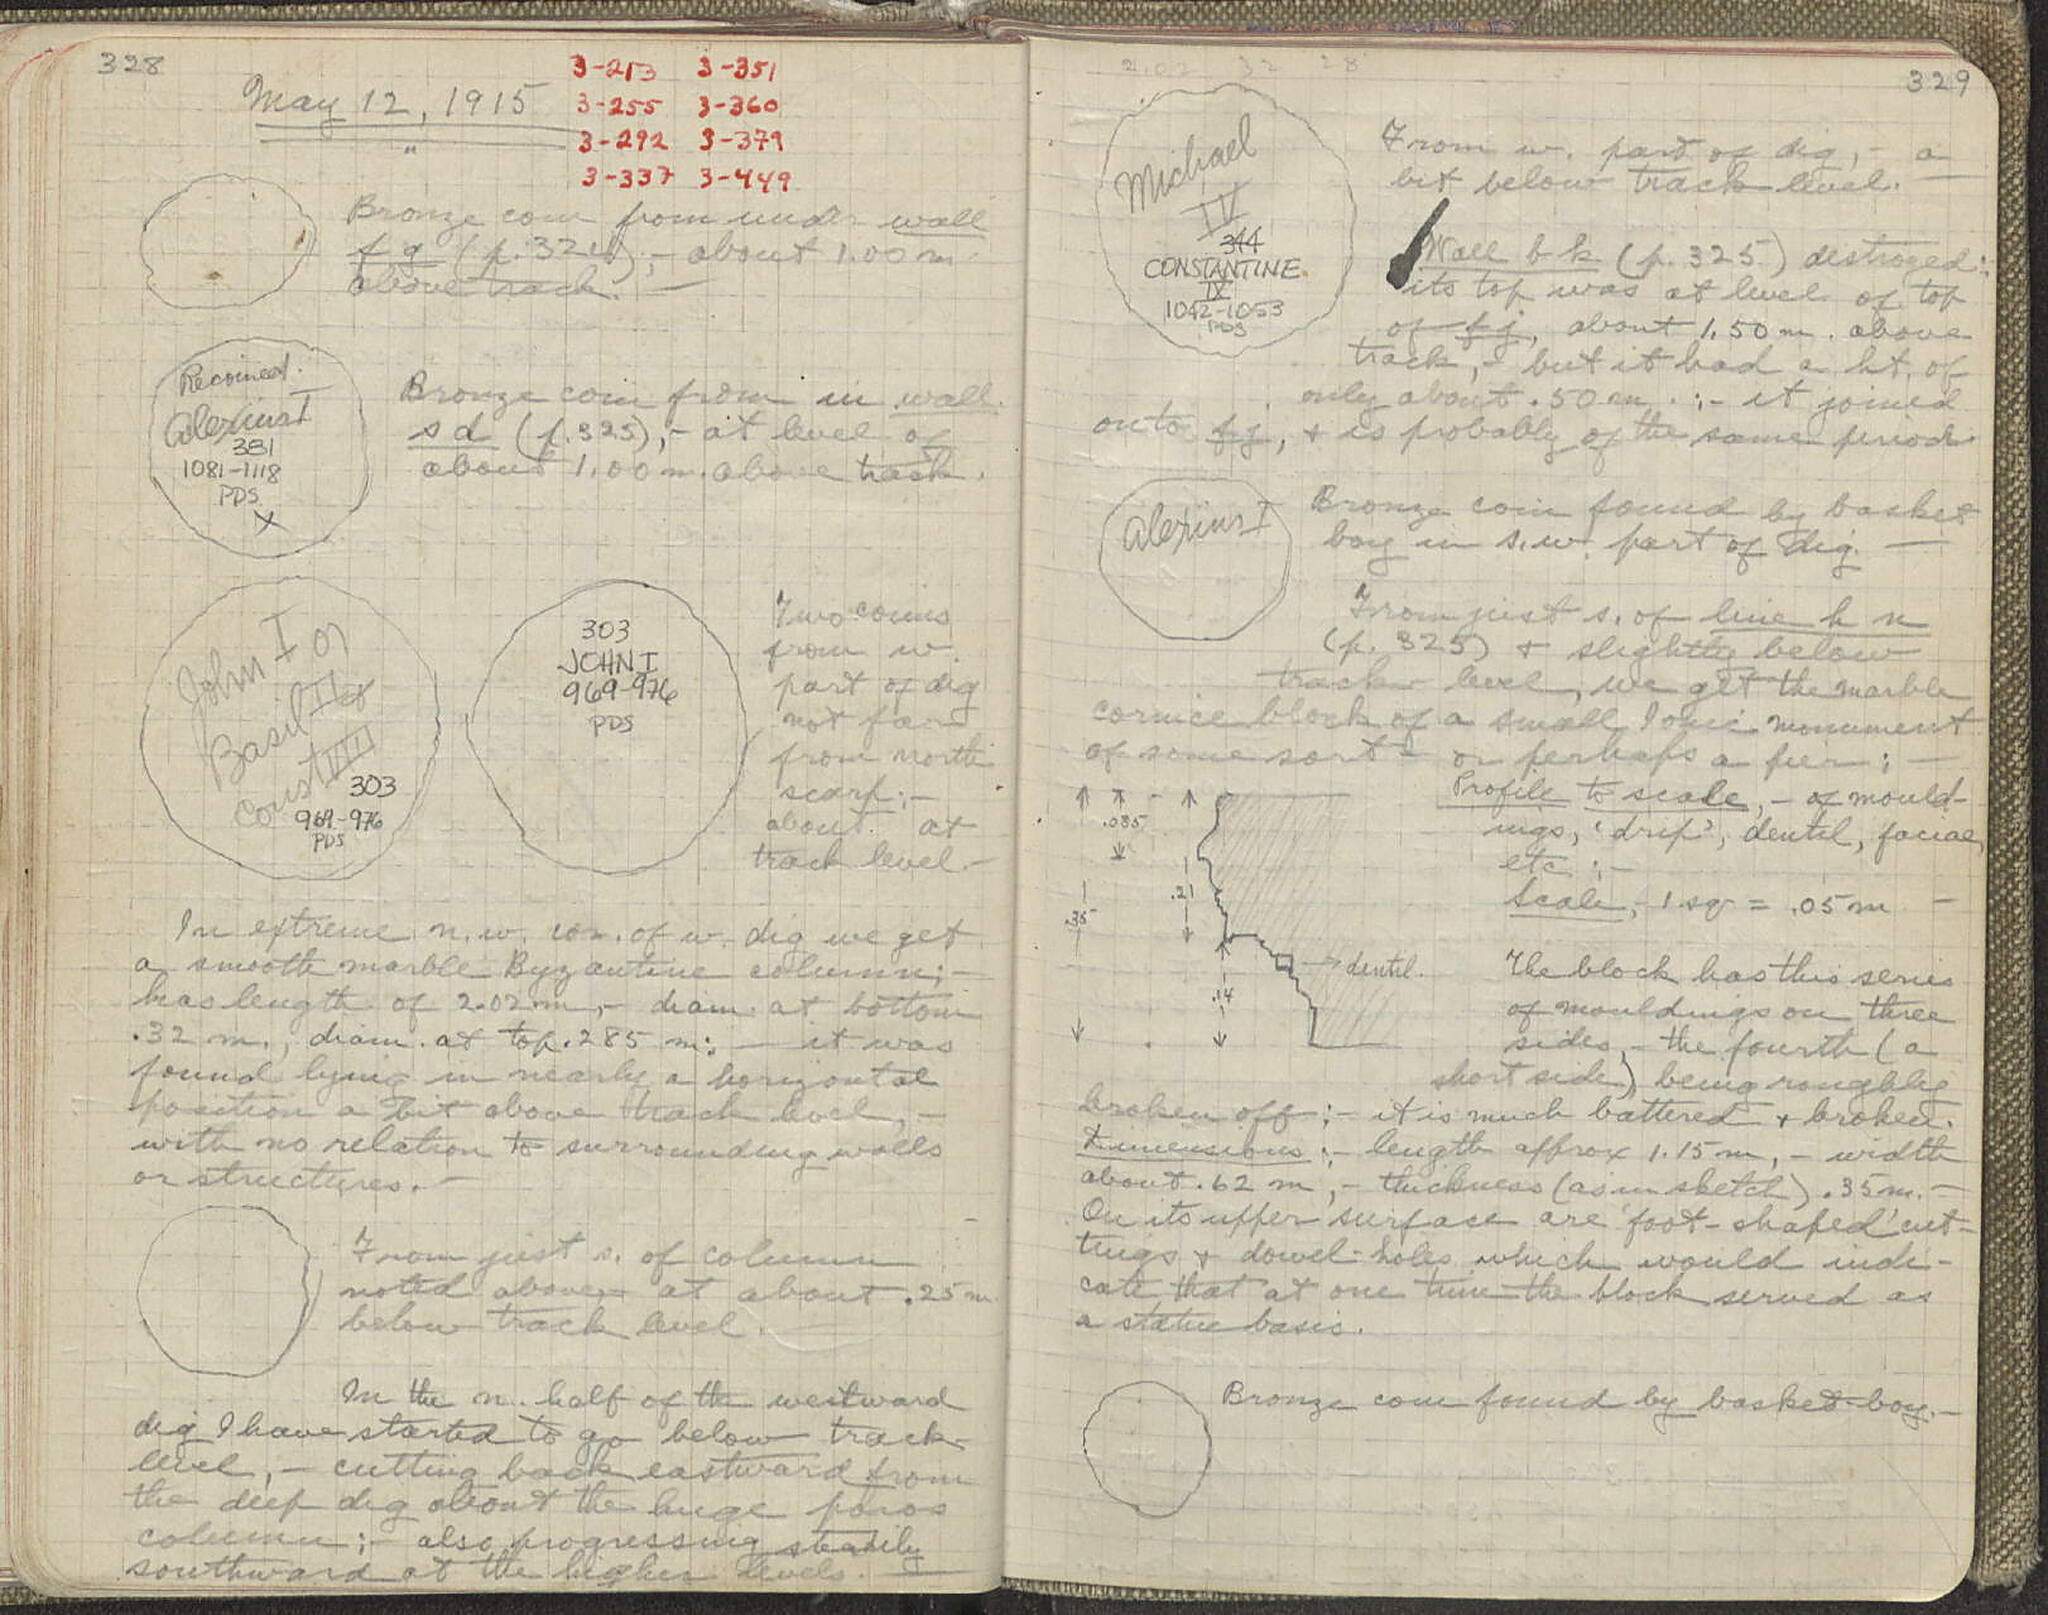 328
May 12, 1915
3-213 3-351
3-255 3-360
3-292 3-379
3-337 3-449
Bronze coin from under wall
f g (p. 324);- about 1.00 m
above track. —
Recoined.
Alexius I
381
1081-1118
PDS
X
Bronze coin from in wall
s d (p. 325),- at level of
about 1.00 m. above track.
John I or
Basil II &
Const VIII
303
969-976
PDS
303
JOHN I
969-976
PDS
Two coins
from w.
part of dig
not far
from north
scarp;-
about at
track level.-
In extreme n.w. cor. of w. dig we get
a smooth marble Byzantine column;-
has length of 2.02 m,- diam. at bottom
.32 m., diam. at top .285 m:, — it was
found lying in nearly a horizontal
position a bit above track level,-
with no relation to surrounding walls
or structures.-
From just s. of column
noted above at about .25 m
below track level.
In the n. half of the westward
dig I have started to go below track
level,- cutting back eastward from
the deep dig about the huge poros
column;- also progressing steadily
southward at the higher levels. —
329
2.02 32 28
Michael
IV
344
CONSTANTINE
IX
1042-1053
PDS
From w. part of dig,- a
bit below track level. —
Wall b k (p. 325) destroyed:
its top was at level of top
of f j, about 1.50 m. above
track,- but it had a ht. of
only about .50 m.;- it joined
on to f j, + is probably of the same period
Alexius I
Bronze coin found by basket
boy in s.w. part of dig. —
From just s. of line h n
(p. 325) + slightly below
track level, we get the marble
cornice block of a small Ionic monument
of some sort - or perhaps a pier; —
Profile to scale,- of mould-
ings, 'drip', dentil, faciae,
etc:-
Scale,- 1 sq = .05 m -
.085
.21
.35
.14
dentil.
The block has this series
of mouldings on three
sides,- the fourth (a
short side) being roughly
broken off;- it is much battered + broken.
Dimensions:- length approx 1.15 m,- width
about .62 m,- thickness (as in sketch) .35 m.-
On its upper surface are 'foot-shaped' cut-
tings + dowel-holes which would indi-
cate that at one time the block served as
a statue basis.
Bronze coin found by basket-boy.-